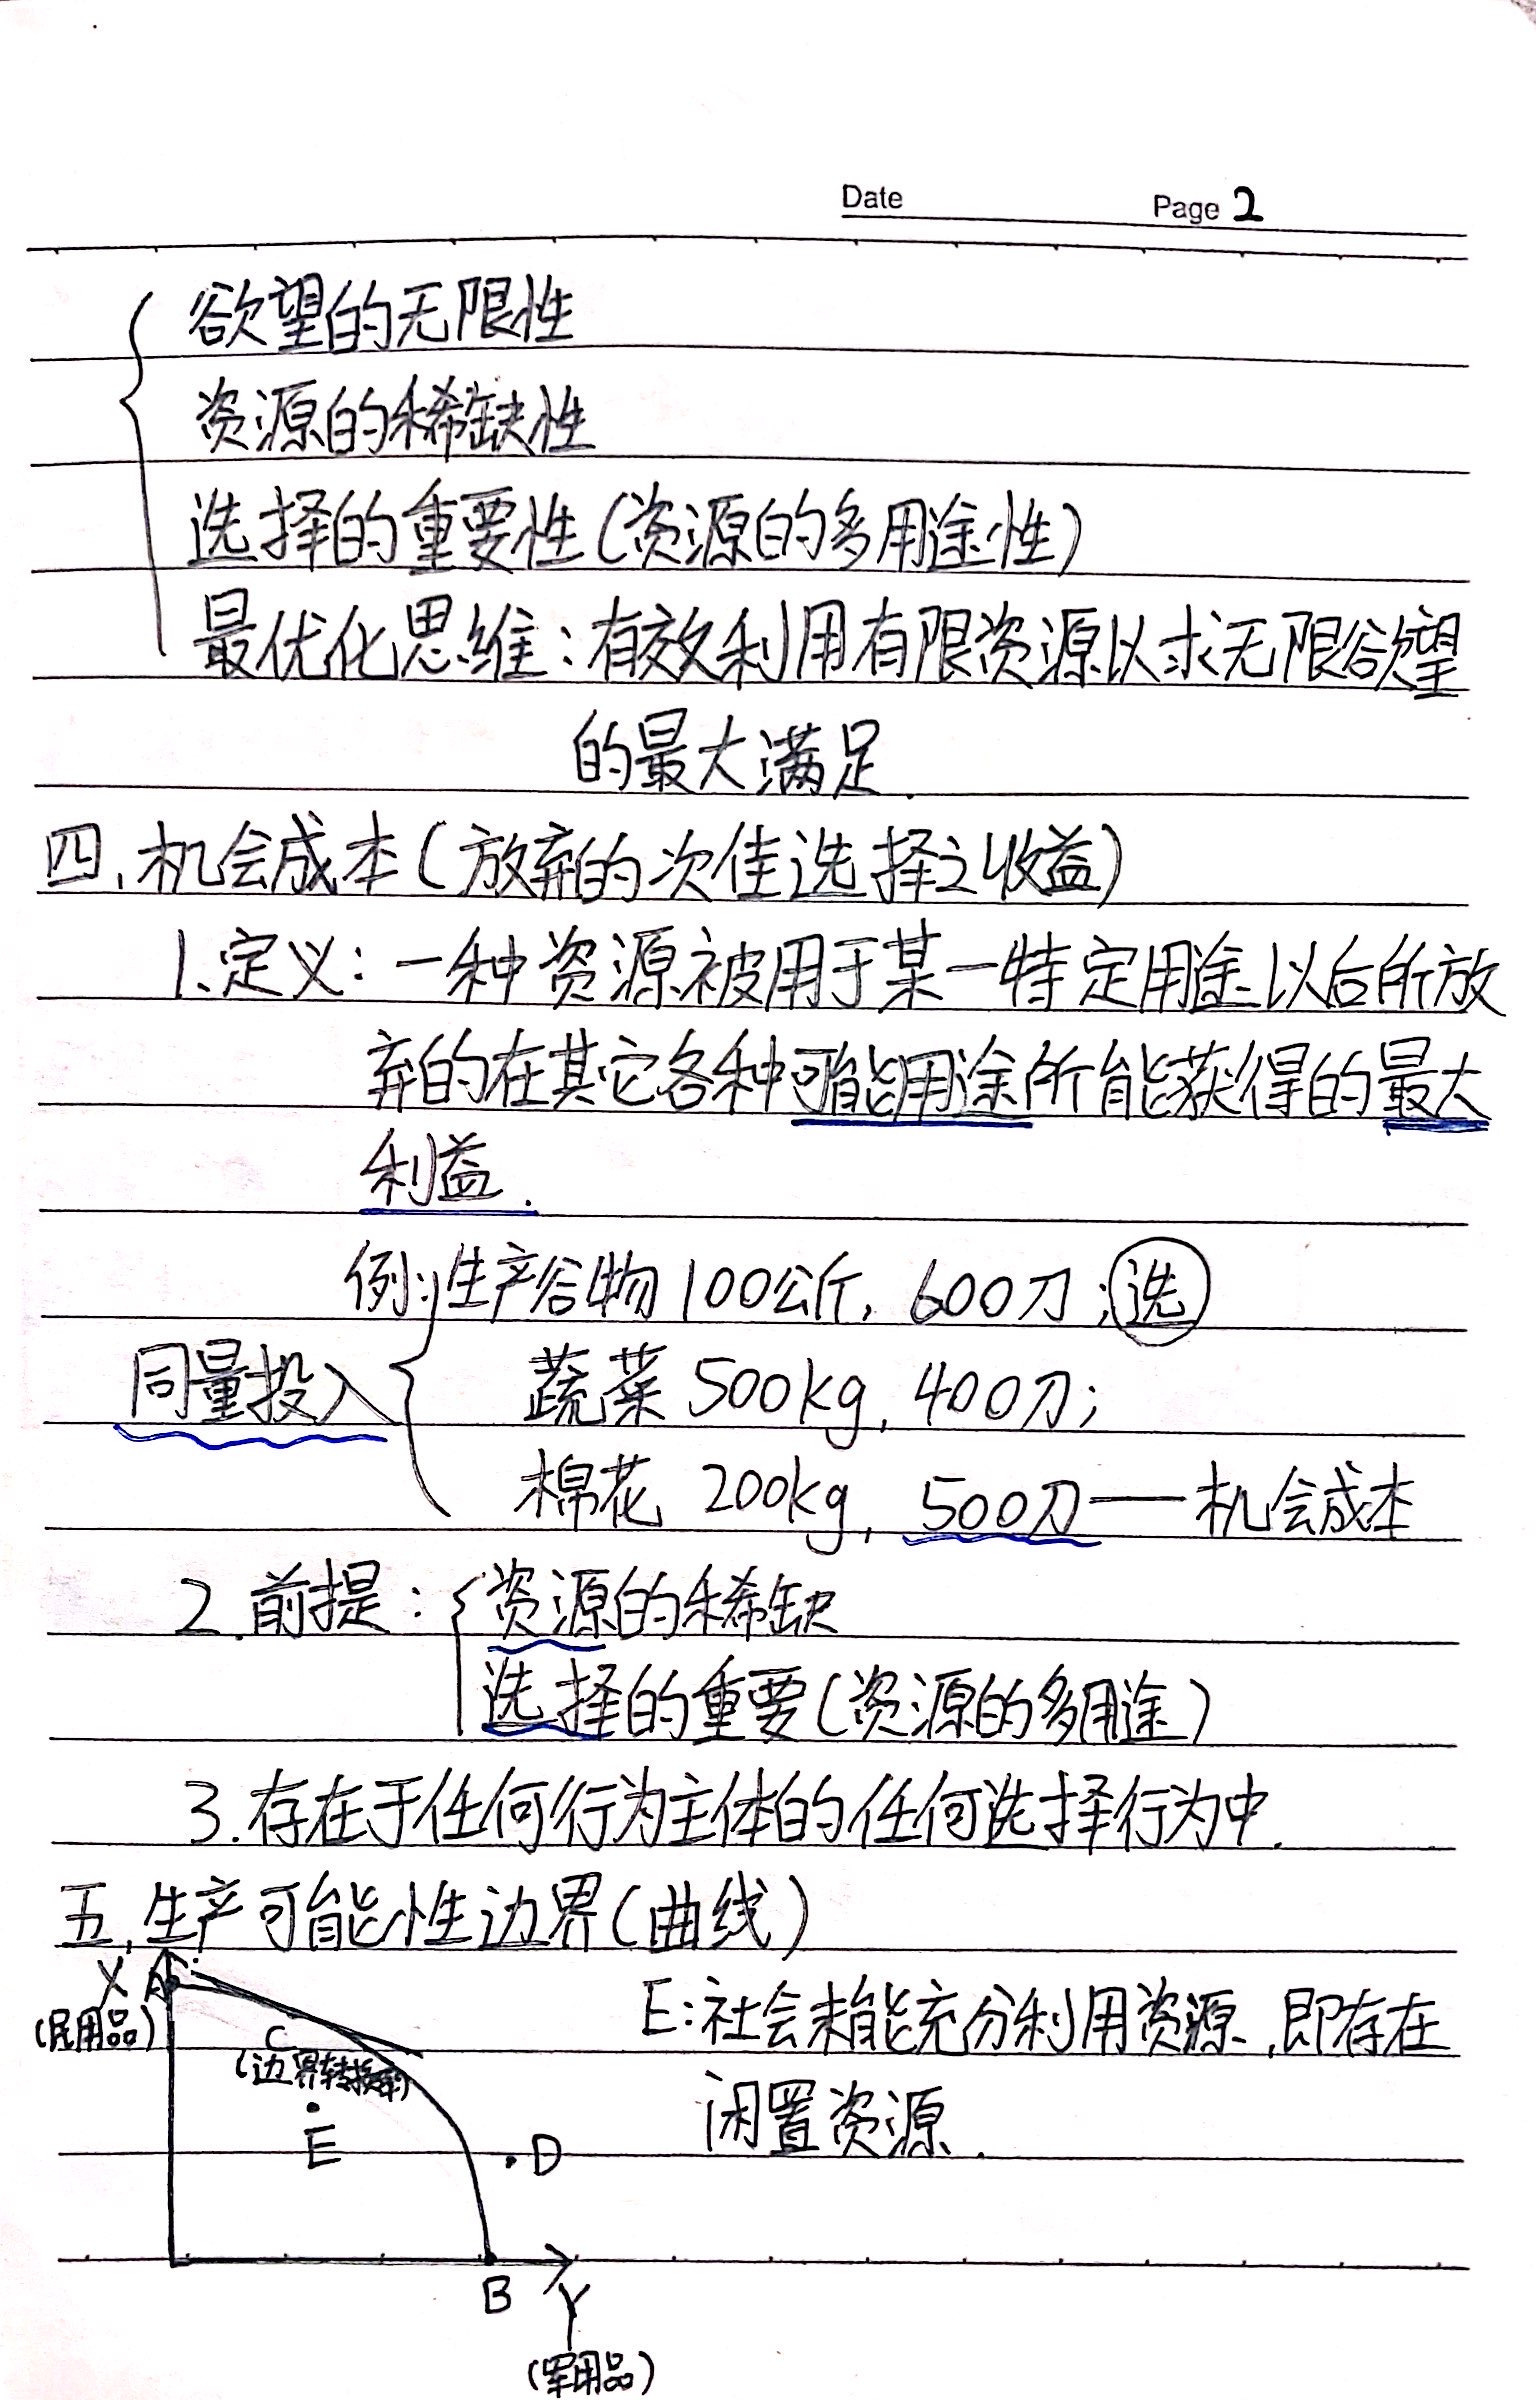 Date Page 2
欲望的无限性
资源的稀缺性
选择的重要性(资源的多用途性)
最优化思维:有效利用有限资源以求无限欲望
的最大满足.
四、机会成本(放弃的次佳选择之收益)
1、定义:一种资源被用于某一特定用途以后所放
弃的在其它各种可能用途所能获得的最大
利益.
例:生产谷物100公斤,600刀;选
同量投入 蔬菜500kg,400刀;
棉花 200kg,500刀——机会成本
2.前提:资源的稀缺
选择的重要(资源的多用途)
3.存在于任何行为主体的任何选择行为中.
五、生产可能性边界(曲线)
X A
(民用品)
E:社会未能充分利用资源,即存在
闲置资源.
C
(边界转换率)
E
D
B Y
(军用品)